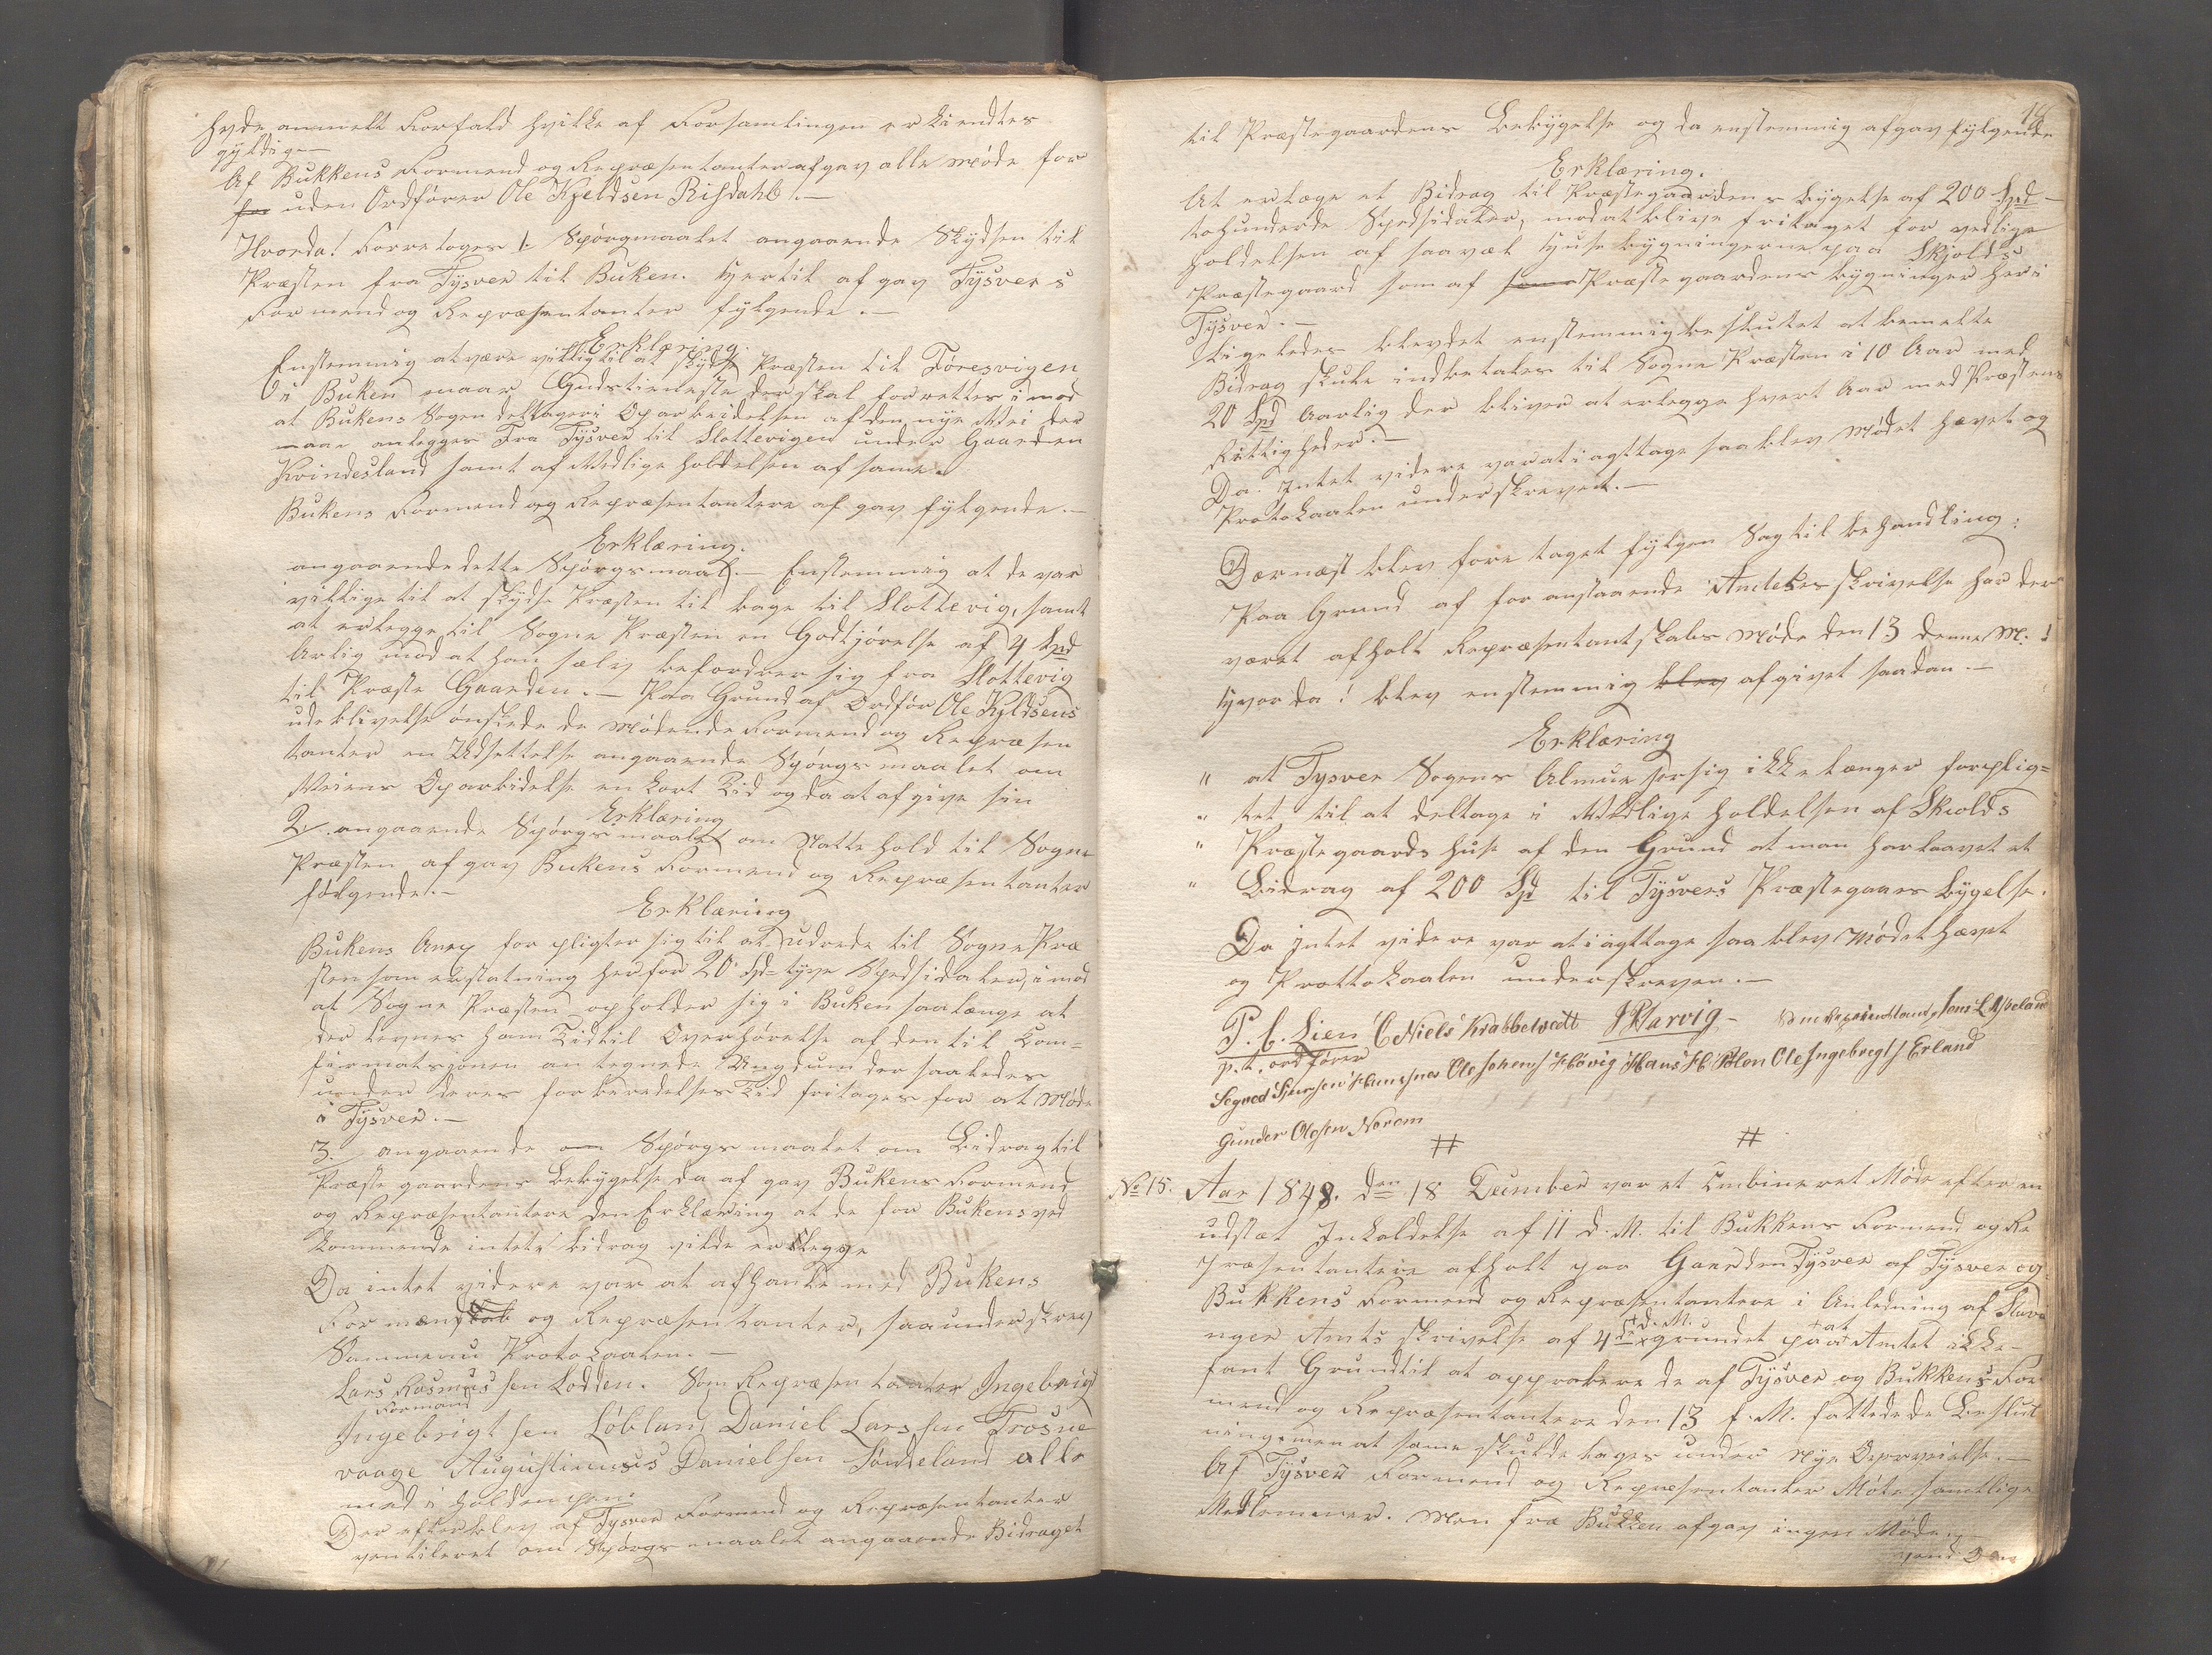 havde anmelt Forfald hvilke af Forsamlingen erkiendtes
gyldige —
Af Bukkens Formend og Repræsentanter afgav alle Møde for
for uden Ordfører Ole Kjeldsen Risdahl. —
Hvorda! Forretoges 1. Spørgmaalet angaaende Skydsen til
Præsten fra Tysver til Buken. Hertil afgav Tysvers
Formend og Repræsentanter følgende. —
Erklæring.
Enstemmig at være villig til at skydse Præsten til Føresvigen
i Buken naar Gudstieneste der skal forrettes imod
at Bukens Sogen deltager i Oparbeidelsen af den nye Vei der
naar anlegges fra Tysver til Slottevigen under Gaarden
Kvindesland samt af Vedligeholdelsen af samme.
Bukens Formend og Repræsentantere afgav følgende. —
Erklæring.
angaaende dette Spørgsmaal. — Enstemmig at de var
villige til at skydse Præsten tilbage til Slottevig, samt
at erlegge til Sogne Præsten en Godtjørelse af 4 Spd
Arlig mod at han selv befordrer sig fra Slottevig
til Præste Gaarden. — Paa Grund af Ordfør Ole Kjeldsens
udeblivelse ønskede de Mødende Formend og Repræsen
tanter en Udsettelse angaaende Spørgsmaalet om
Veiens Oparbidelse en kort Tid og da at afgive sin
Erklæring
2. angaaende Spørgsmaalet om Natte hold til Sogne
Præsten afgav Bukens Formend og Repræsentanter
følgende. —
Erklæring
Bukens Anex forpligter sig til at udrede til Sogne Præ
sten som erstatning herfor 20 Spd tyve Spedsidaler, imod
at Sogne Præsten opholder sig i Buken saalænge at
der levnes ham Tid til Overhørelse af den til Con=
firmatsionen antegnede Ungdum der saaledes
under deres forberedelses Tid fritages for at Møde
i Tysver. —
3. angaaende om Spørgsmaalet om Bidrag til
Præstegaardens Bebygelse da afgav Bukens Formend
og Repræsentantere den Erklæring at de for Bukens ved
kommende intet bidrag vilde erlegge
Da intet videre var at afhandle med Bukens
Formænskab og Repræsentanter, saa underskrev
Sammenu Protokaalen. —
Lars Rasmussen Lodden. Som Repræsentanter Ingebrigt
Formand
Ingebrigtsen Løbland Daniel Larssen Frosne
vaage Augustinus Danielsen Søndeland alle
med i holden pen.
Der efter blev af Tysver Formend og Repræsentanter
ventileret om Spørgsmaalet angaaende Bidraget
til Præstegaardens Bebygelse og da enstemmig afgav følgende
Erklæring.
At erlæge et Bidrag til Præstegaardens bygelse af 200 Spd —
tohunderde Spedsidaler, mod at blive fritaget for vedlige
holdelsen af saavel Huse bygningerne paa Skjolds
Præstegaard som af Præstegaardens bygninger her i
Tysver. —
Ligeledes blev det enstemmig besluttet at bemelte
Bidrag skulle indbetales til Sogne Præsten i 10 Aar med
20 Spd Aarlig der bliver at erlegge hvert Aar med Præstens
Rettigheder. —
Da intet videre var at iagttage saa blev Mødet hævet og
Protokaalen underskrevet. —
Dærnæst blev fore taget følgen Sag til behandling:
Paa Grund af foranstaaende Amtes skrivelse har der
været afholt Repræsentantskabs Møde den 13 denne M.!
Hvorda! blev enstemmig blev afgivet saadan. —
Erklæring
" at Tysver Sogens Almue for sig ikke længer forplig=
" tet til at deltage i Vedligeholdelsen af Skiolds
" Præstegaards huse af den Grund at man har lavet et
" Bidrag af 200 Spd til Tysvers Præstegaars bygelse.
Da Intet videre var at iagttage saa blev Mødet hævet
og Prottokaalen underskreven. —
P. C. Lien C Niels Krabbetvedt Jens L Apeland
p.t. ordfører
Segnud Simensen Hemesnes Ole Johens Høvig Hans H Ølen Ole Ingebregts Erland
Gunder Olesen Norem
# #
No 15. Aar 1848. den 18 December var et Combineret Møde efter en
udstæt Inkaldelse af 11 d. M. til Bukkens Formend og Re
præsentantere afholt paa Gaarden Tysver af Tysver og
Bukkens Formend og Repræsentantere i Anledning af Stava
nger Amts skrivelse af 4de d. M. grundet paa at Amtet ikke
fant Grund til at approbere de af Tysver og Bukkens For
mend og Repræsentantere den 13 f. M. fattede de Beslut
ninger men at same skulde tages under Nye Overveielse. —
Af Tysver Formend og Repræsentanter Møte samtlige
Medlemmer. Men fra Bukken afgav ingen Møde. —